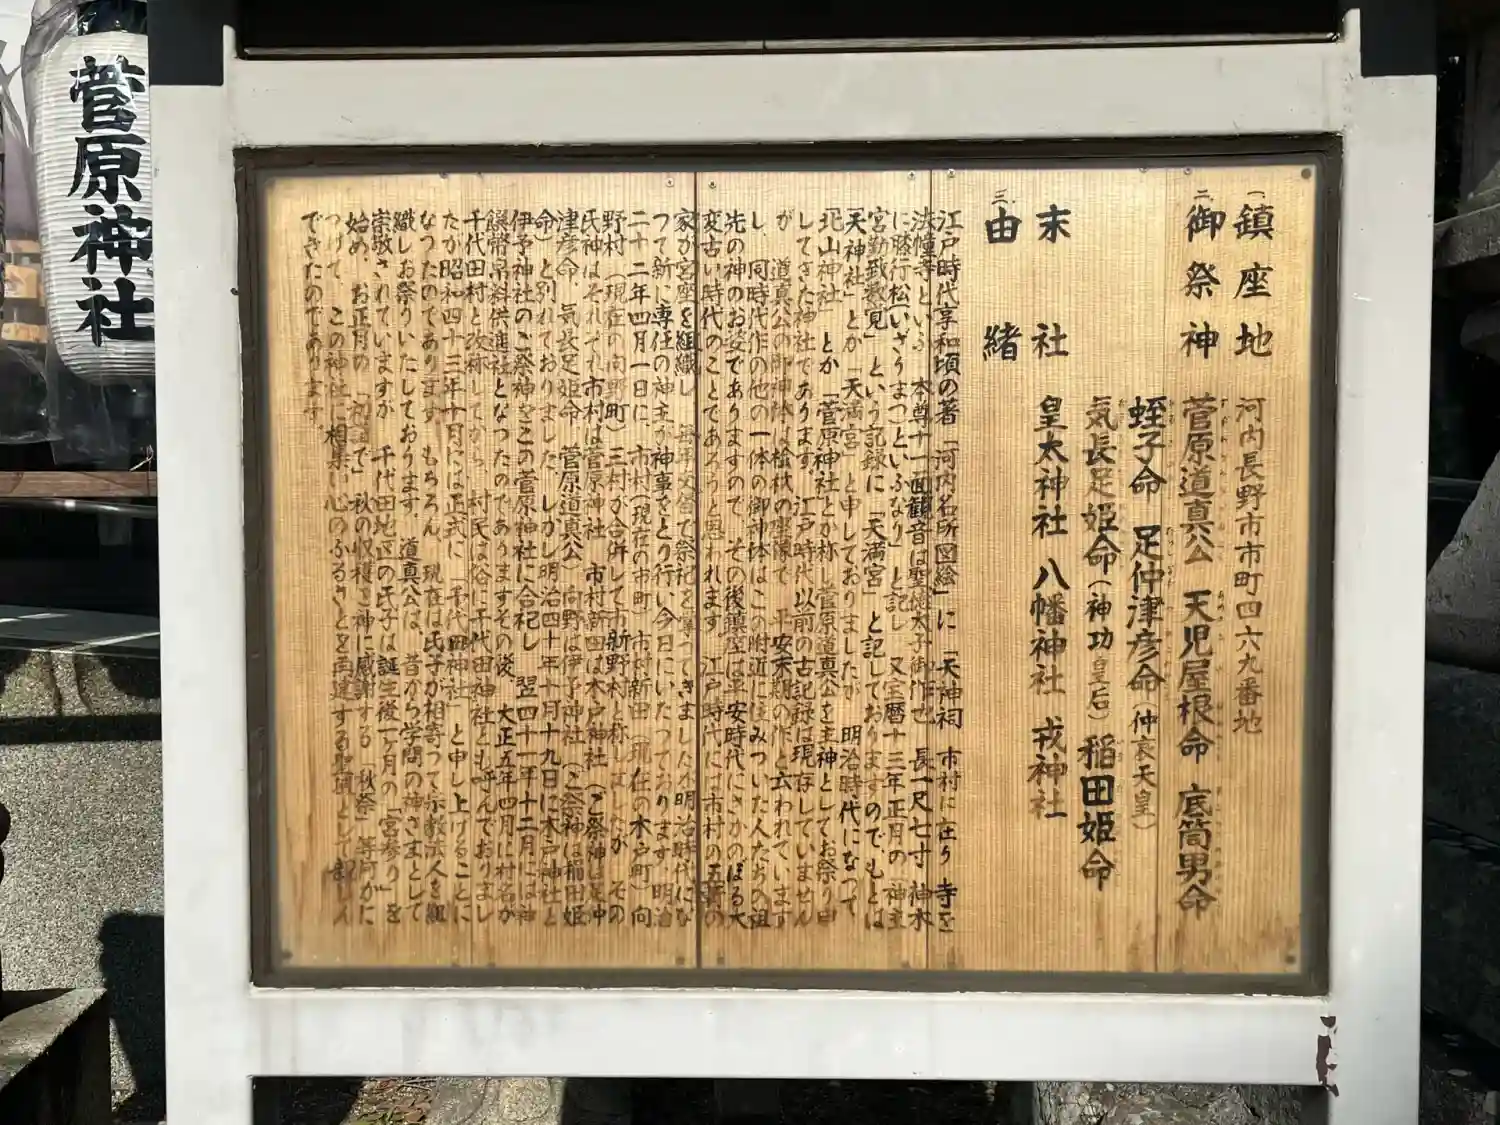 一、鎮座地 河内長野市市町四六九番地
二、御祭神 菅原道真公 天児屋根命 底筒男命
蛭子命 足仲津彦命(仲哀天皇)
気長足姫命(神功皇后)稲田姫命
末社 皇太神社 八幡神社 戎神社
三、由緒
江戸時代享和頃の著「河内名所図絵」に「天神祠 市村に在り 寺を
法幢寺といふ 本尊十一面観音は聖徳太子御作也 長一尺七寸 神木
に膝行松(いざりまつ)といふなり」と記し 又宝暦十三年正月の「神主
宮勤致数覚」という記録に「天満宮」と記しておりますのでもとは
「天神社」とか「天満宮」と申しておりましたが 明治時代になって
「北山神社」とか「菅原神社」とか称し菅原道真公を主神としてお祭り申
してきた神社であります。江戸時代以前の古記録は現存していません
が 道真公の御神体は桧材の座像で 平安末期の作と云われています
し 同時代作の他の一体の御神体はこの附近に住みついた人たちの祖
先の神のお姿でありますので その後鎮座は平安時代にさかのぼる大
変古い時代のことであろうと思われます 江戸時代には市村の五軒の
家が宮座を組織し 毎年交替で祭祀を奉ってきましたが明治時代にな
って新に専任の神主が神事をとり行い今日にいたっております。明治
二十二年四月一日に、市村(現在の市町) 市村新田(現在の木戸町)向
野村(現在の向野町)三村が合併して市新野村と称しましたが その
氏神はそれぞれ市村は菅原神社 市村新田は木戸神社(ご祭神は足仲
津彦命、気長足姫命 菅原道真公)向野は伊予神社(ご祭神は稲田姫
命)と別れておりました。しかし明治四十年十月十九日に木戸神社と
伊予神社のご祭神をこの菅原神社に合祀し 翌四十一年十二月には神
饌幣帛料供進社となったのでありますその後 大正五年四月に村名が
千代田村と改称してから、村民は俗に千代田神社とも呼んでおりまし
たが昭和四十三年十月には正式に「千代田神社」と申し上げることに
なったのであります。もちろん、現在は氏子が相寄って宗教法人を組
織しお祭りいたしております。道真公は、昔から学問の神さまとして
崇敬されていますが 千代田地区の氏子は誕生後一ヶ月の「宮参り」を
始め、お正月の「初詣で」秋の収穫を神に感謝する「秋祭」等何かに
つけて、この神社に相集い心のふるさとを再建する聖頂として親しん
できたのであります。
菅原神社